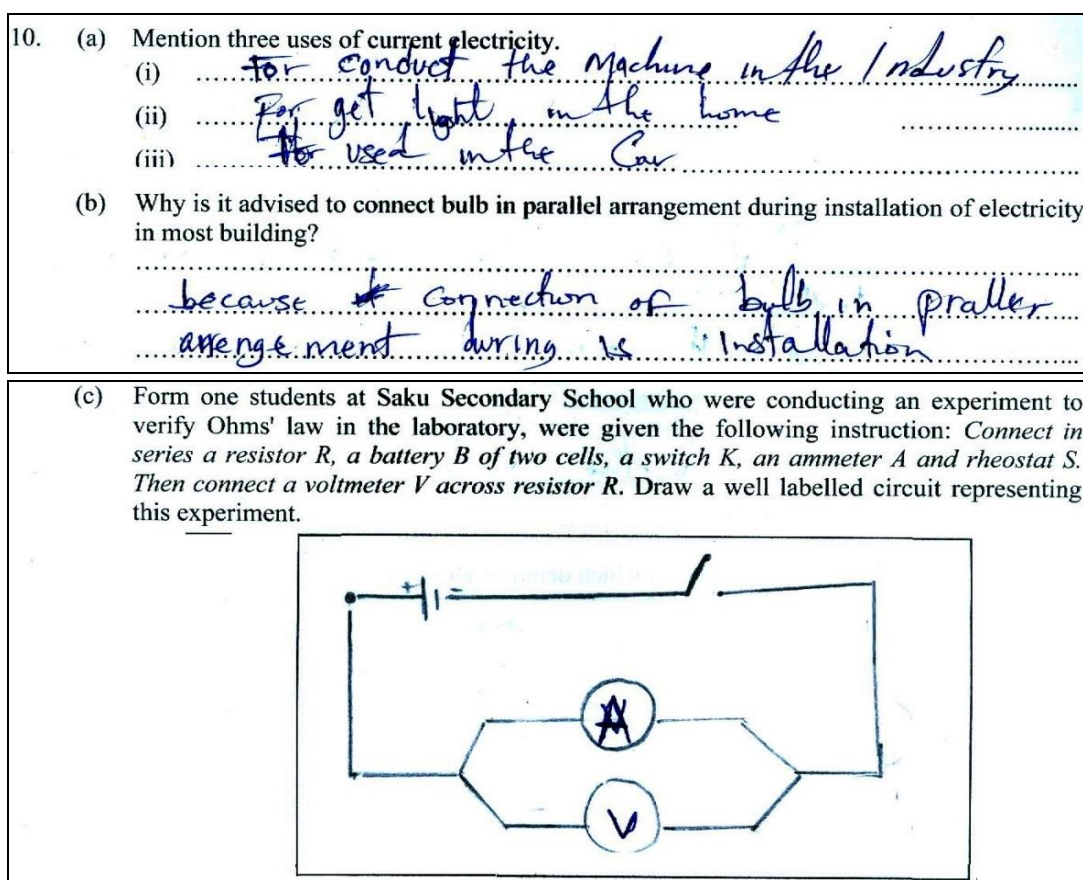 10. (a) Mention three uses of current electricity.
(i) For conduct the Machine in the Industry
(ii) For get light in the home
(iii) for used in the Car
(b) Why is it advised to connect bulb in parallel arrangement during installation of electricity
in most building?
because connection of bulb in praller
arrengement during is Installation
(c) Form one students at Saku Secondary School who were conducting an experiment to
verify Ohms' law in the laboratory, were given the following instruction: Connect in
series a resistor R, a battery B of two cells, a switch K, an ammeter A and rheostat S.
Then connect a voltmeter V across resistor R. Draw a well labelled circuit representing
this experiment.
+ -
A
V